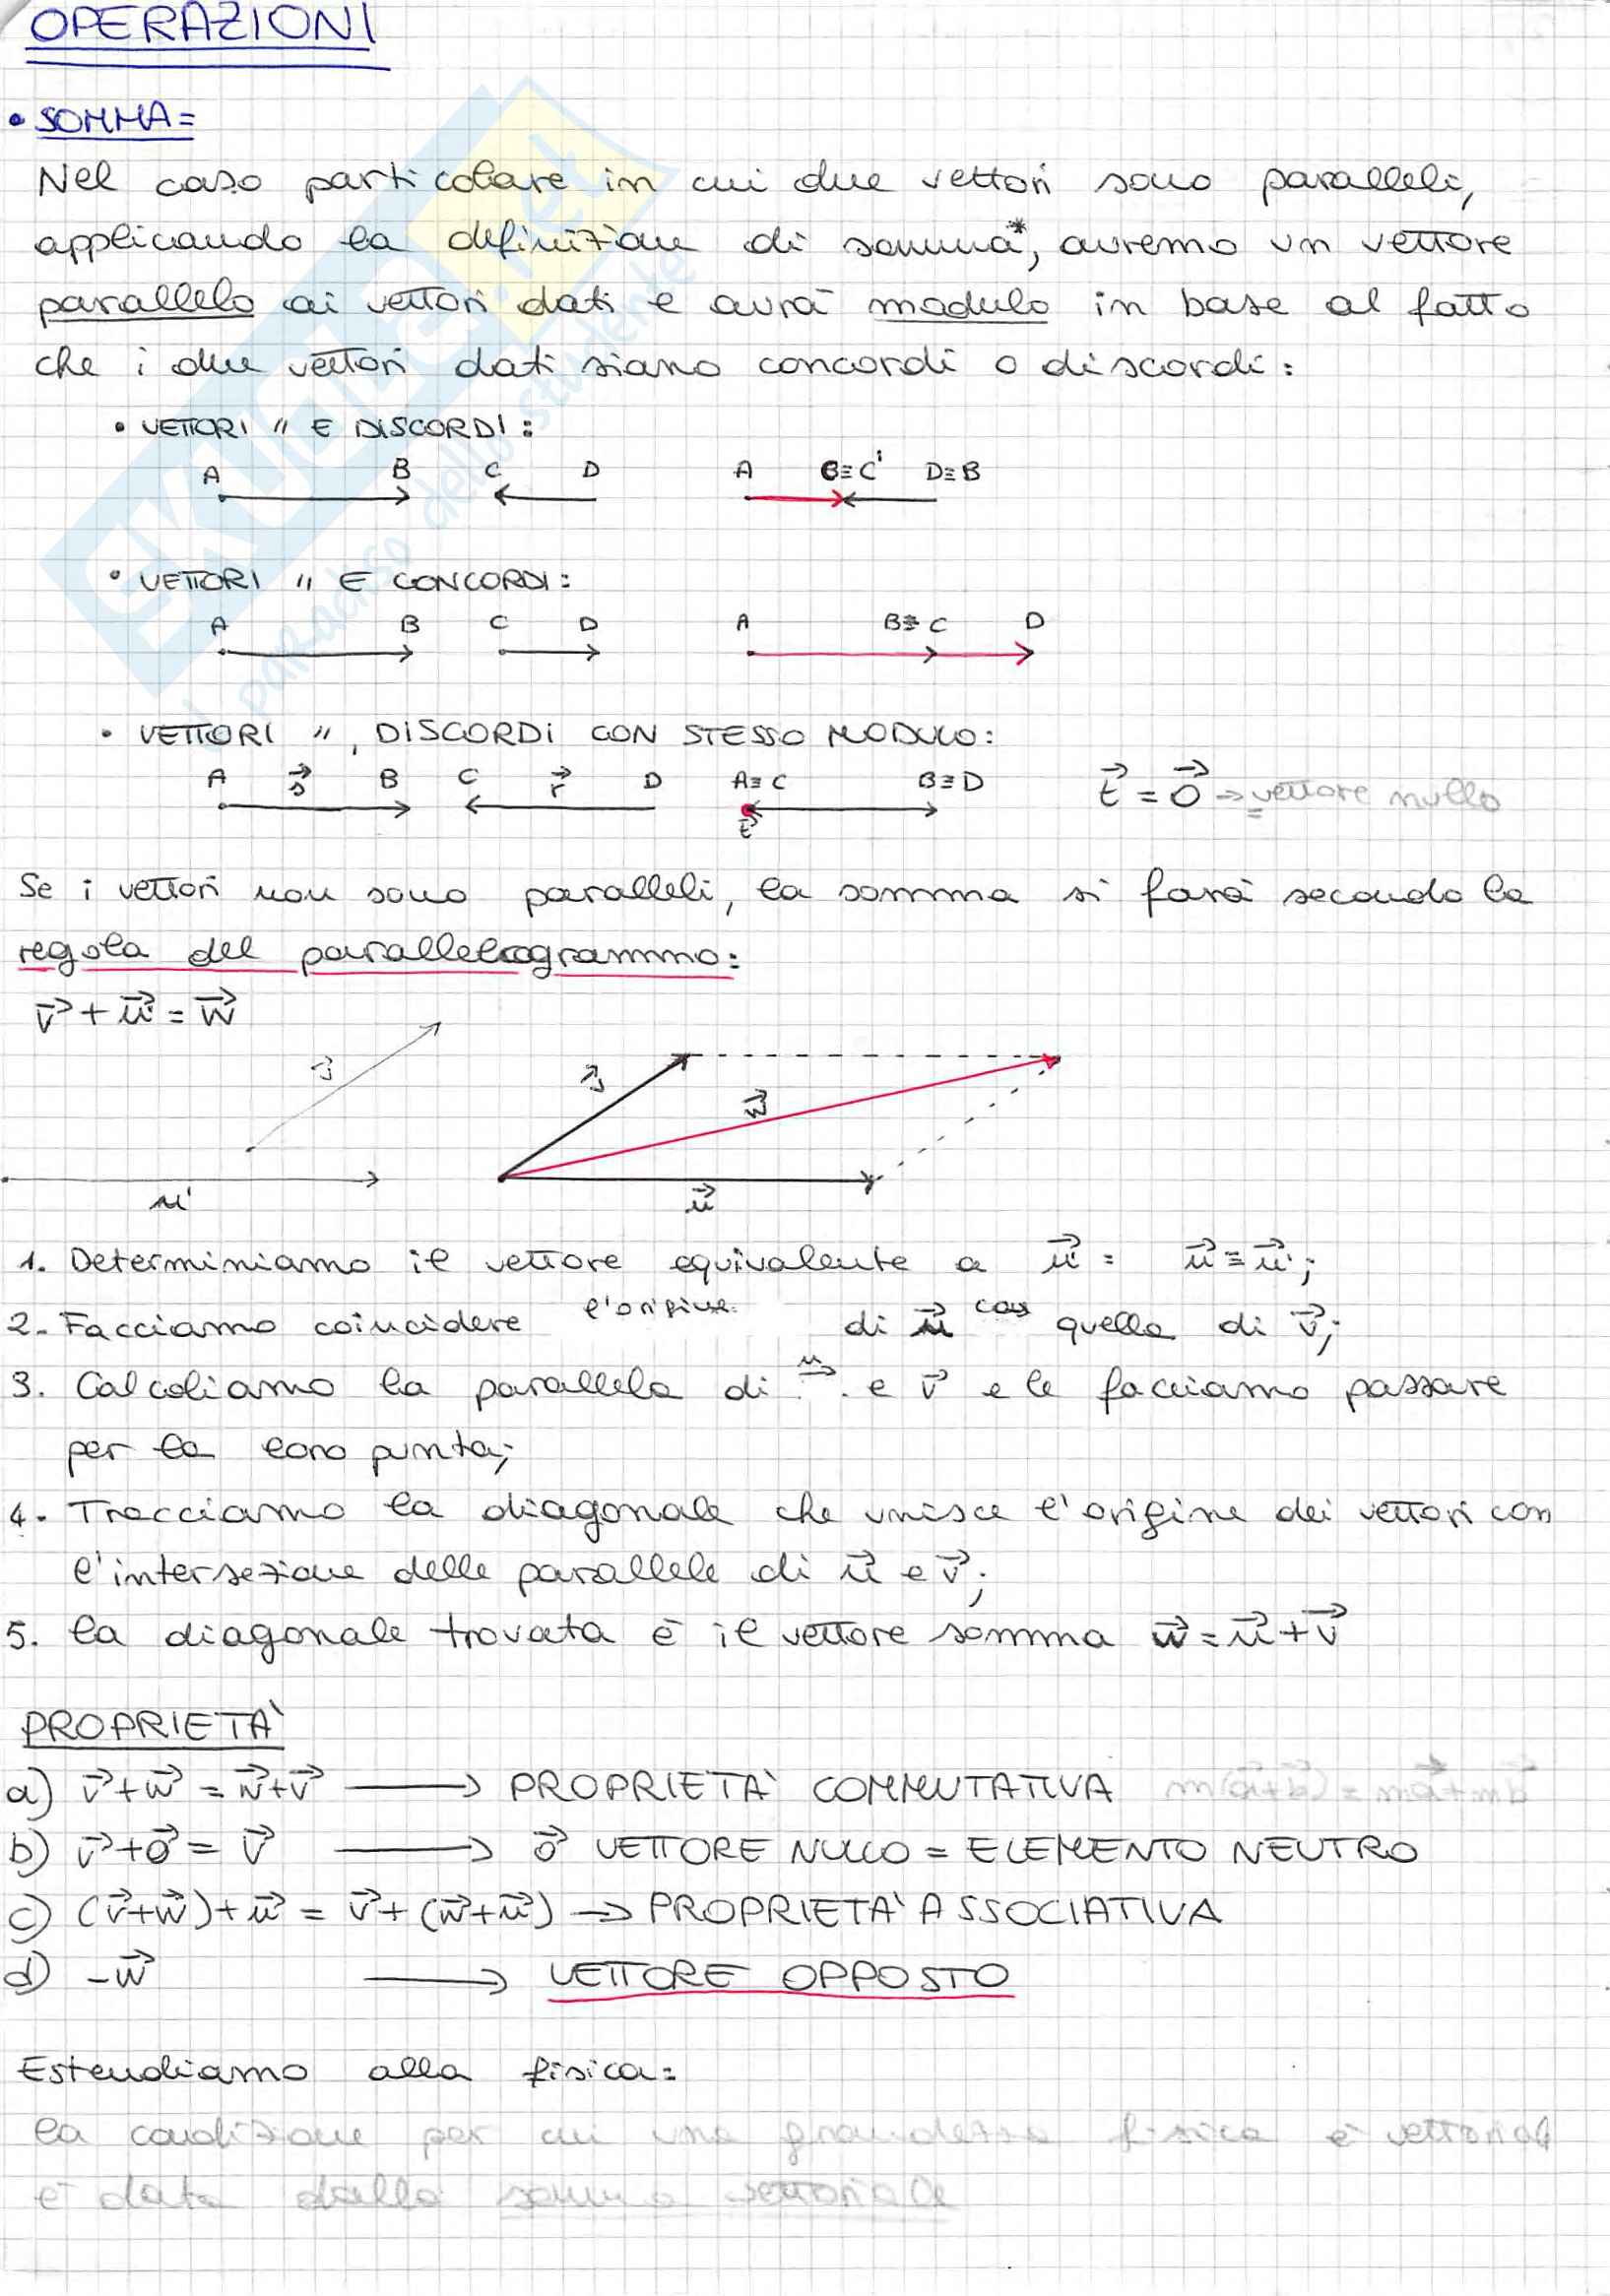 OPERAZIONI
• SOMMA=
Nel caso particolare in cui due vettori sono paralleli,
applicando la definizione di somma*, avremo un vettore
parallelo ai vettori dati e avrà modulo in base al fatto
che i due vettori dati siano concordi o discordi:
• VETTORI // E DISCORDI:
A B C D A C≡C' D≡B
• VETTORI // E CONCORDI:
A B C D A B≡C D
• VETTORI //, DISCORDI CON STESSO MODULO:
A s⃗ B C r⃗ D A≡C B≡D t⃗ = 0⃗ → vettore nullo
t⃗
Se i vettori non sono paralleli, la somma si farà secondo la
regola del parallelogrammo:
v⃗ + u⃗' = w⃗
v⃗ v⃗ w⃗
u' u⃗
1. Determiniamo il vettore equivalente a u⃗' = u⃗ ≡ u⃗';
2. Facciamo coincidere l'origine di u⃗ con quella di v⃗;
3. Calcoliamo la parallela di u⃗ e v⃗ e le facciamo passare
per la loro punta;
4. Tracciamo la diagonale che unisce l'origine dei vettori con
l'intersezione delle parallele di u⃗ e v⃗;
5. la diagonale trovata è il vettore somma w⃗ = u⃗ + v⃗
PROPRIETÀ
a) v⃗+w⃗ = w⃗+v⃗ → PROPRIETÀ COMMUTATIVA m(a⃗+b⃗) = ma⃗+mb⃗
b) v⃗+0⃗ = v⃗ → 0⃗ VETTORE NULLO = ELEMENTO NEUTRO
c) (v⃗+w⃗)+u⃗ = v⃗+(w⃗+u⃗) → PROPRIETÀ ASSOCIATIVA
d) -w⃗ → VETTORE OPPOSTO
Estendiamo alla fisica:
la condizione per cui una grandezza fisica è vettoriale
è data dalla somma vettoriale
SKUOLA.net
il paradiso dello studente